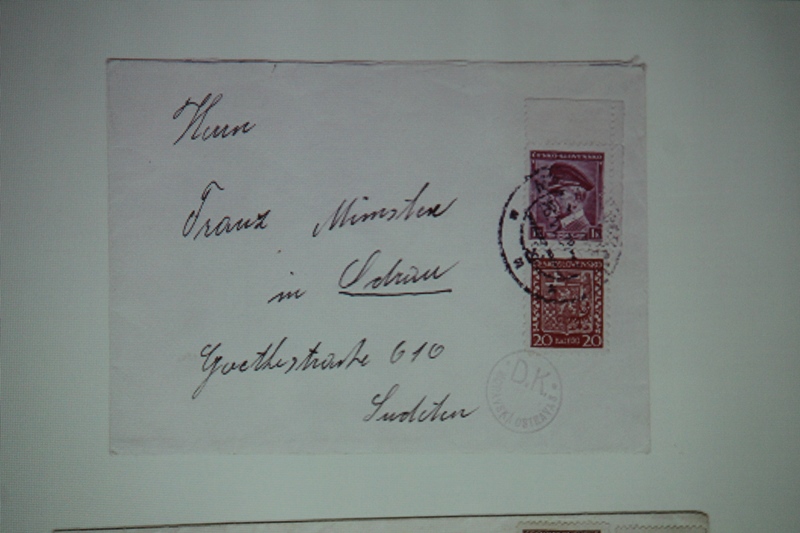 Herrn
ČESKO-SLOVENSKO
Franz
in Odrau
ČESKOSLOVENSKO
20 HALÉŘŮ 20
Goethestraße 610
D.K.
MORAVSKÁ OSTRAVA 8.
Sudeten